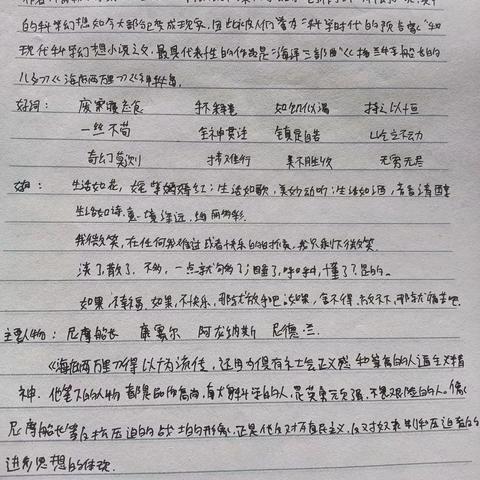 的科学幻想如今大部已变成现实,因此被人们誉为"科学时代的预言家"和
现代科学幻想小说之父,最具代表性的作品是"海洋三部曲"《格兰特船长的
儿女》《海底两万里》《神秘岛》
好词: 废寝忘食 手不释卷 如饥似渴 持之以恒
一丝不苟 全神贯注 镇定自若 屹立不动
奇幻莫测 排难行 美不胜收 无穷无尽
好句: 生活如花,姹紫嫣红;生活如歌,美妙动听;生活如酒,芳香清醇
生活如诗,意境深远,绚丽多彩.
我微笑,在任何我难过或者快乐的时候,我只剩下微笑.
淡了,散了,不够,一点就够了;困了,睡,懂了?是的.
如果,不幸福,如果,不快乐,那就放手吧;如果,舍不得、放不下,那就痛苦吧.
主要人物: 尼摩船长 康塞尔 阿龙纳斯 尼德·兰.
《海底两万里》得以广为流传,还因为具有社会正义感和崇高的人道主义精
神.他笔下的人物都是品质高尚,有献身科学的人,是英勇无畏,不畏艰险的人.像
尼摩船长等反抗压迫的战士的形象,正是代反对殖民主义,反对奴隶制和压迫者的
进步思想的体现.